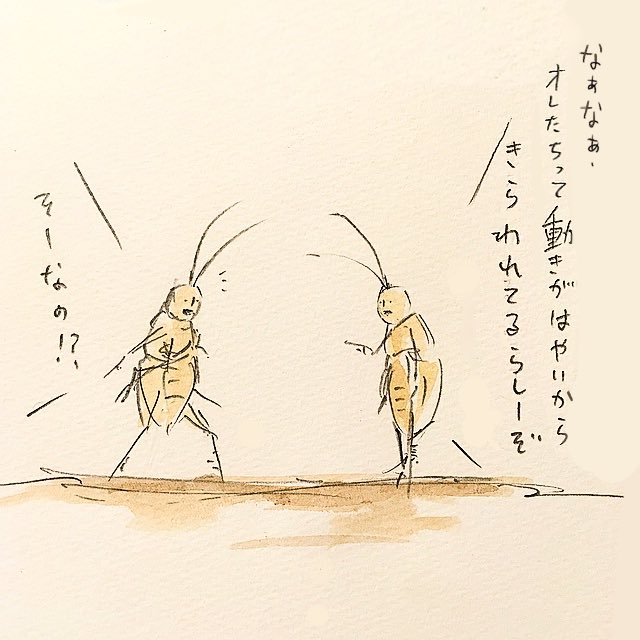 なぁなぁ、
オレたちって動きがはやいから
きらわれてるらしーぞ
そーなの!?